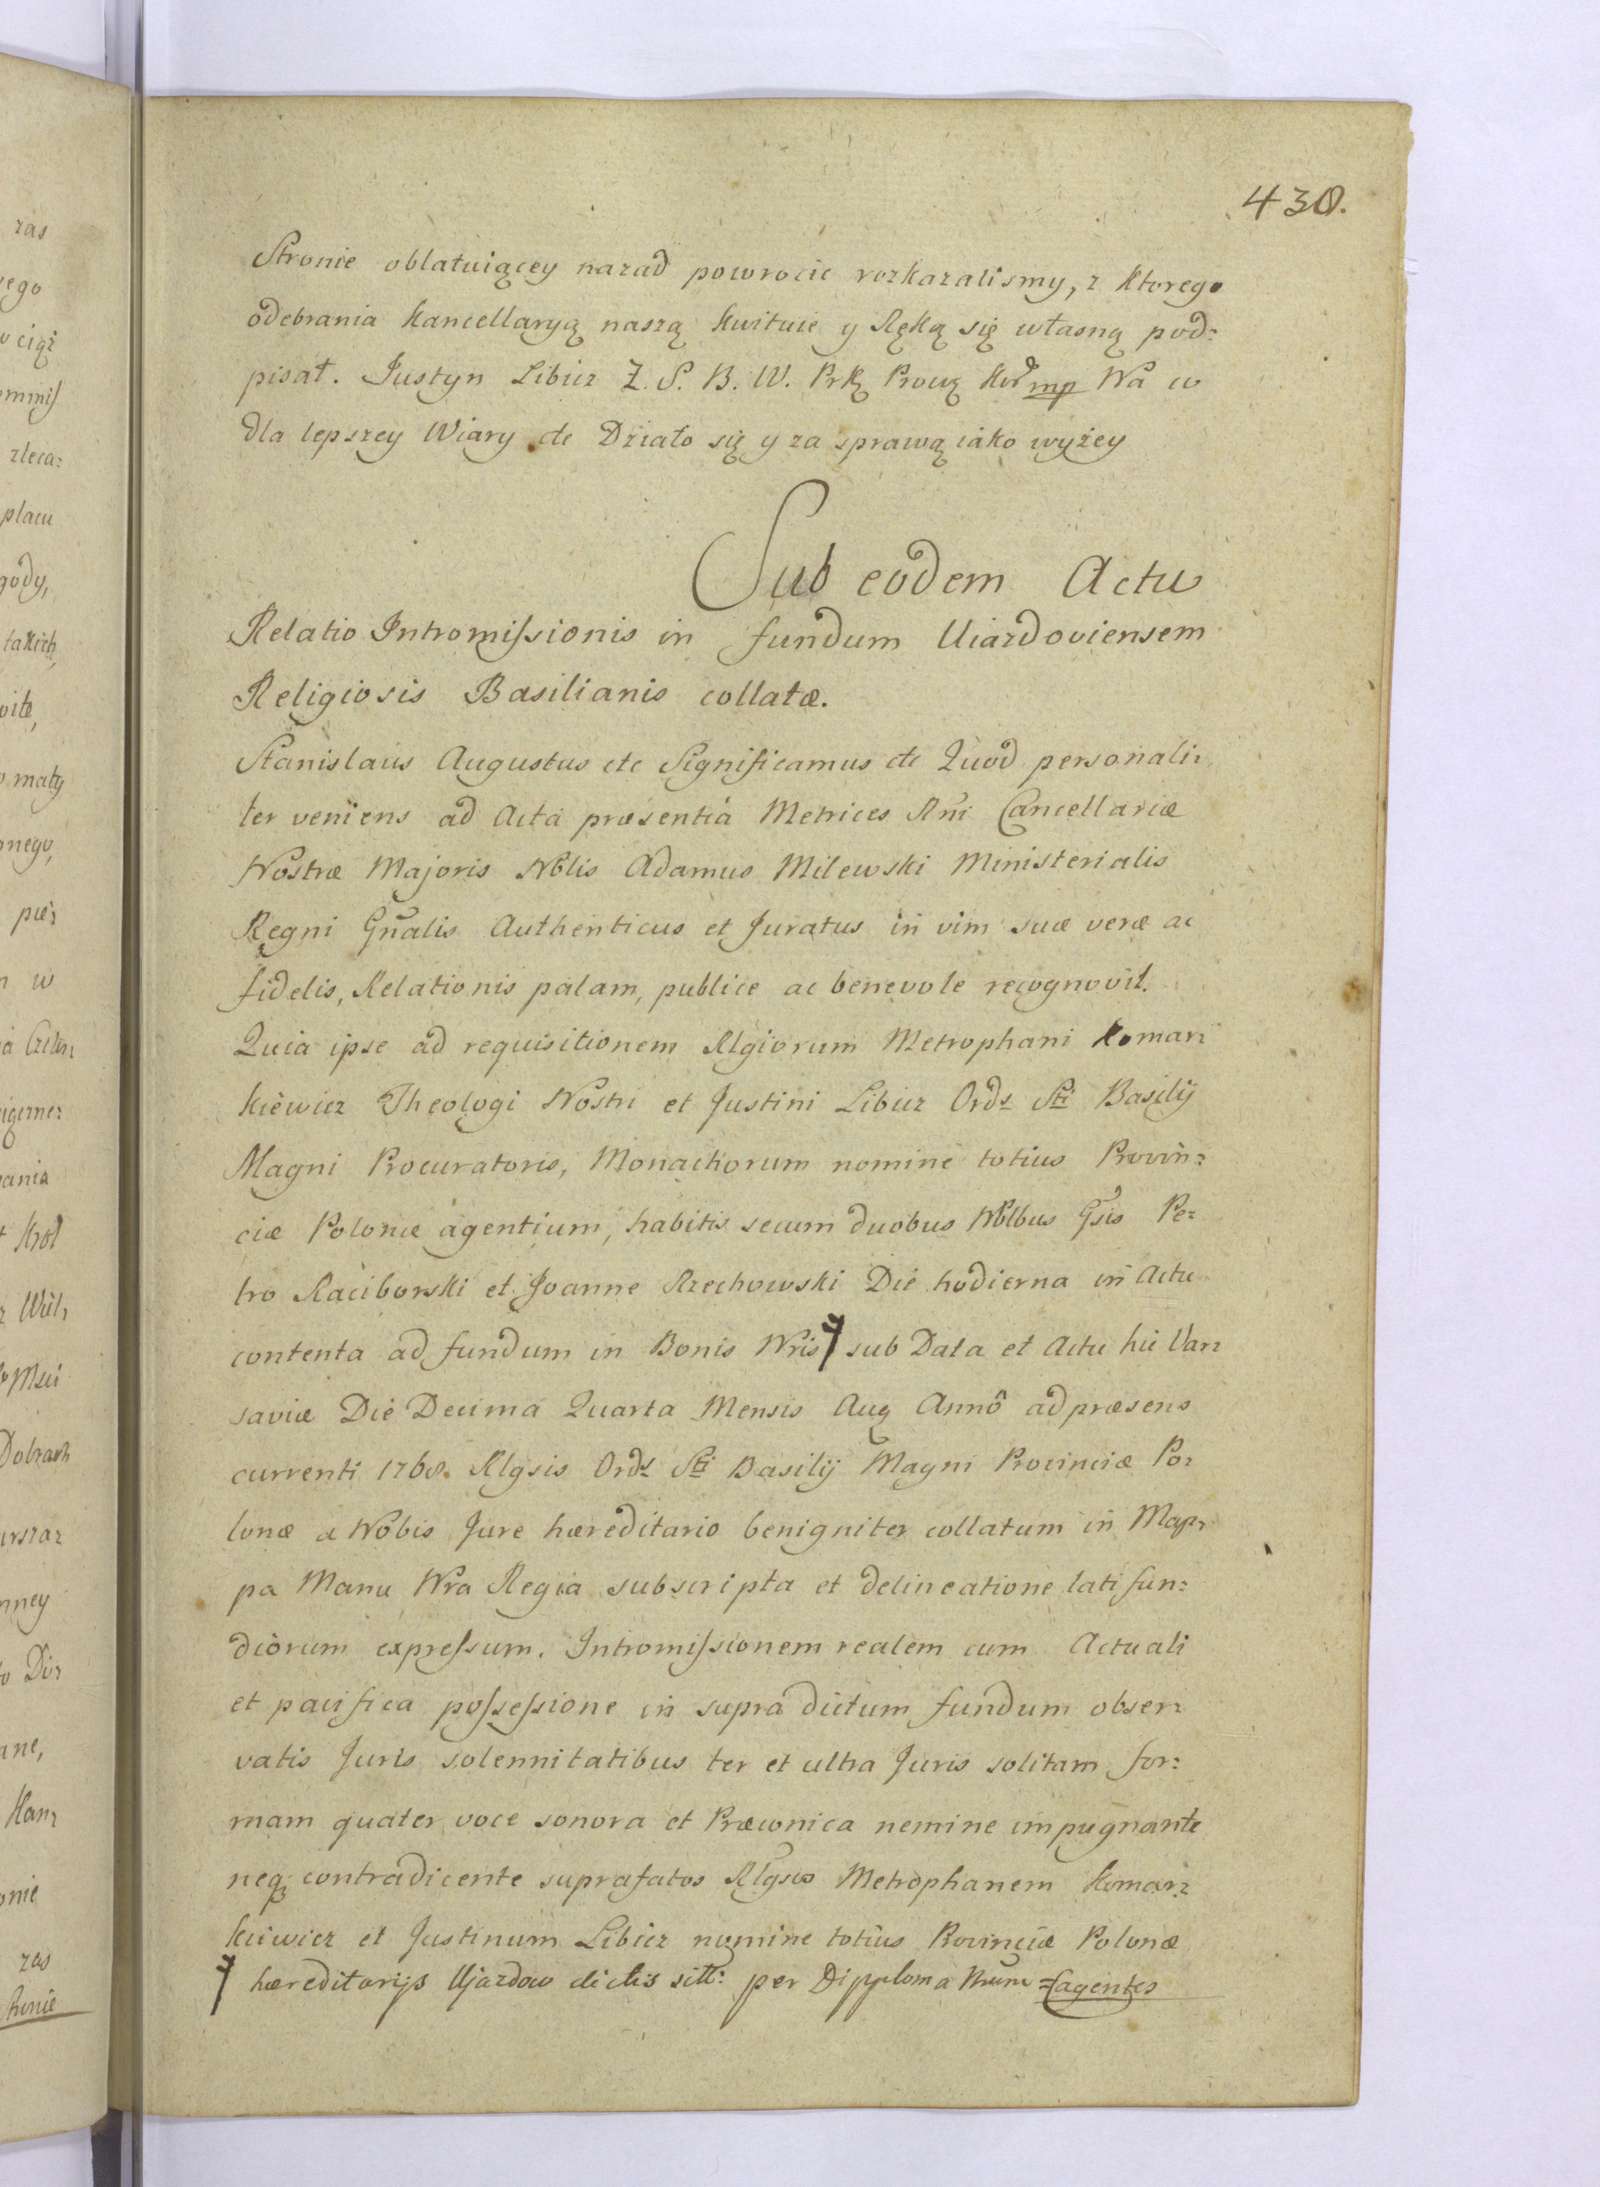 430.
Stronie oblatuiącey nazad powrocic rozkazalismy, z ktorego
odebrania Kancellaryą naszą kwituie y Ręką się własną pod:
pisał. Justyn Libicz Z. S. B. W. Prk Prowę Kor mp Na co
dla lepszey Wiary etc Działo się y za sprawą iako wyżey
Sub eodem Actu
Relatio Intromiſsionis in fundum Uiazdoviensem
Religiosis Basilianis collatæ.
Stanislaus Augustus etc Significamus etc Quod personali:
ter veniens ad Acta præsentia Metrices Rni Cancellariæ
Nostræ Majoris Nblis Adamus Milewski Ministerialis
Regni Gnalis Authenticus et Juratus in vim suæ veræ ac
fidelis, Relationis palam, publice ac benevole recognovit.
Quia ipse ad requisitionem Rlgiorum Metrophani Komar:
kiewicz Theologi Nostri et Justini Libicz Ords Sti Basilij
Magni Procuratoris, Monachorum nomine totius Provin:
ciæ Polonæ agentium, habitis secum duobus Nblbus Gsis Pe:
tro Raciborski et Joanne Rzechowski Die hodierna in Actu
contenta ad fundum in Bonis Nris sub Data et Actu hic Var:
saviæ Die Decima Quarta Mensis Aug Anno ad præsens
currenti 1768. Rlgsis Ords Sti Basilij Magni Provinciæ Po:
lonæ a Nobis Jure hæreditario benigniter collatum in Map:
pa Manu Nra Regia subscripta et delineatione latifun:
diorum expreſsum. Intromiſsionem realem cum Actuali
et pacifica poſseſsione in supra dictum fundum obser:
vatis Juris solennitatibus ter et ultra Juris solitam for:
mam quater voce sonora et Præconica nemine impugnante
neq contradicente suprafatos Rlgsos Metrophanem Komar:
kiewicz et Justinum Libicz nomine totius Provinciæ Polonæ
hæreditarijs Ujazdow dictis sitt: per Dipploma Nrum =agentes